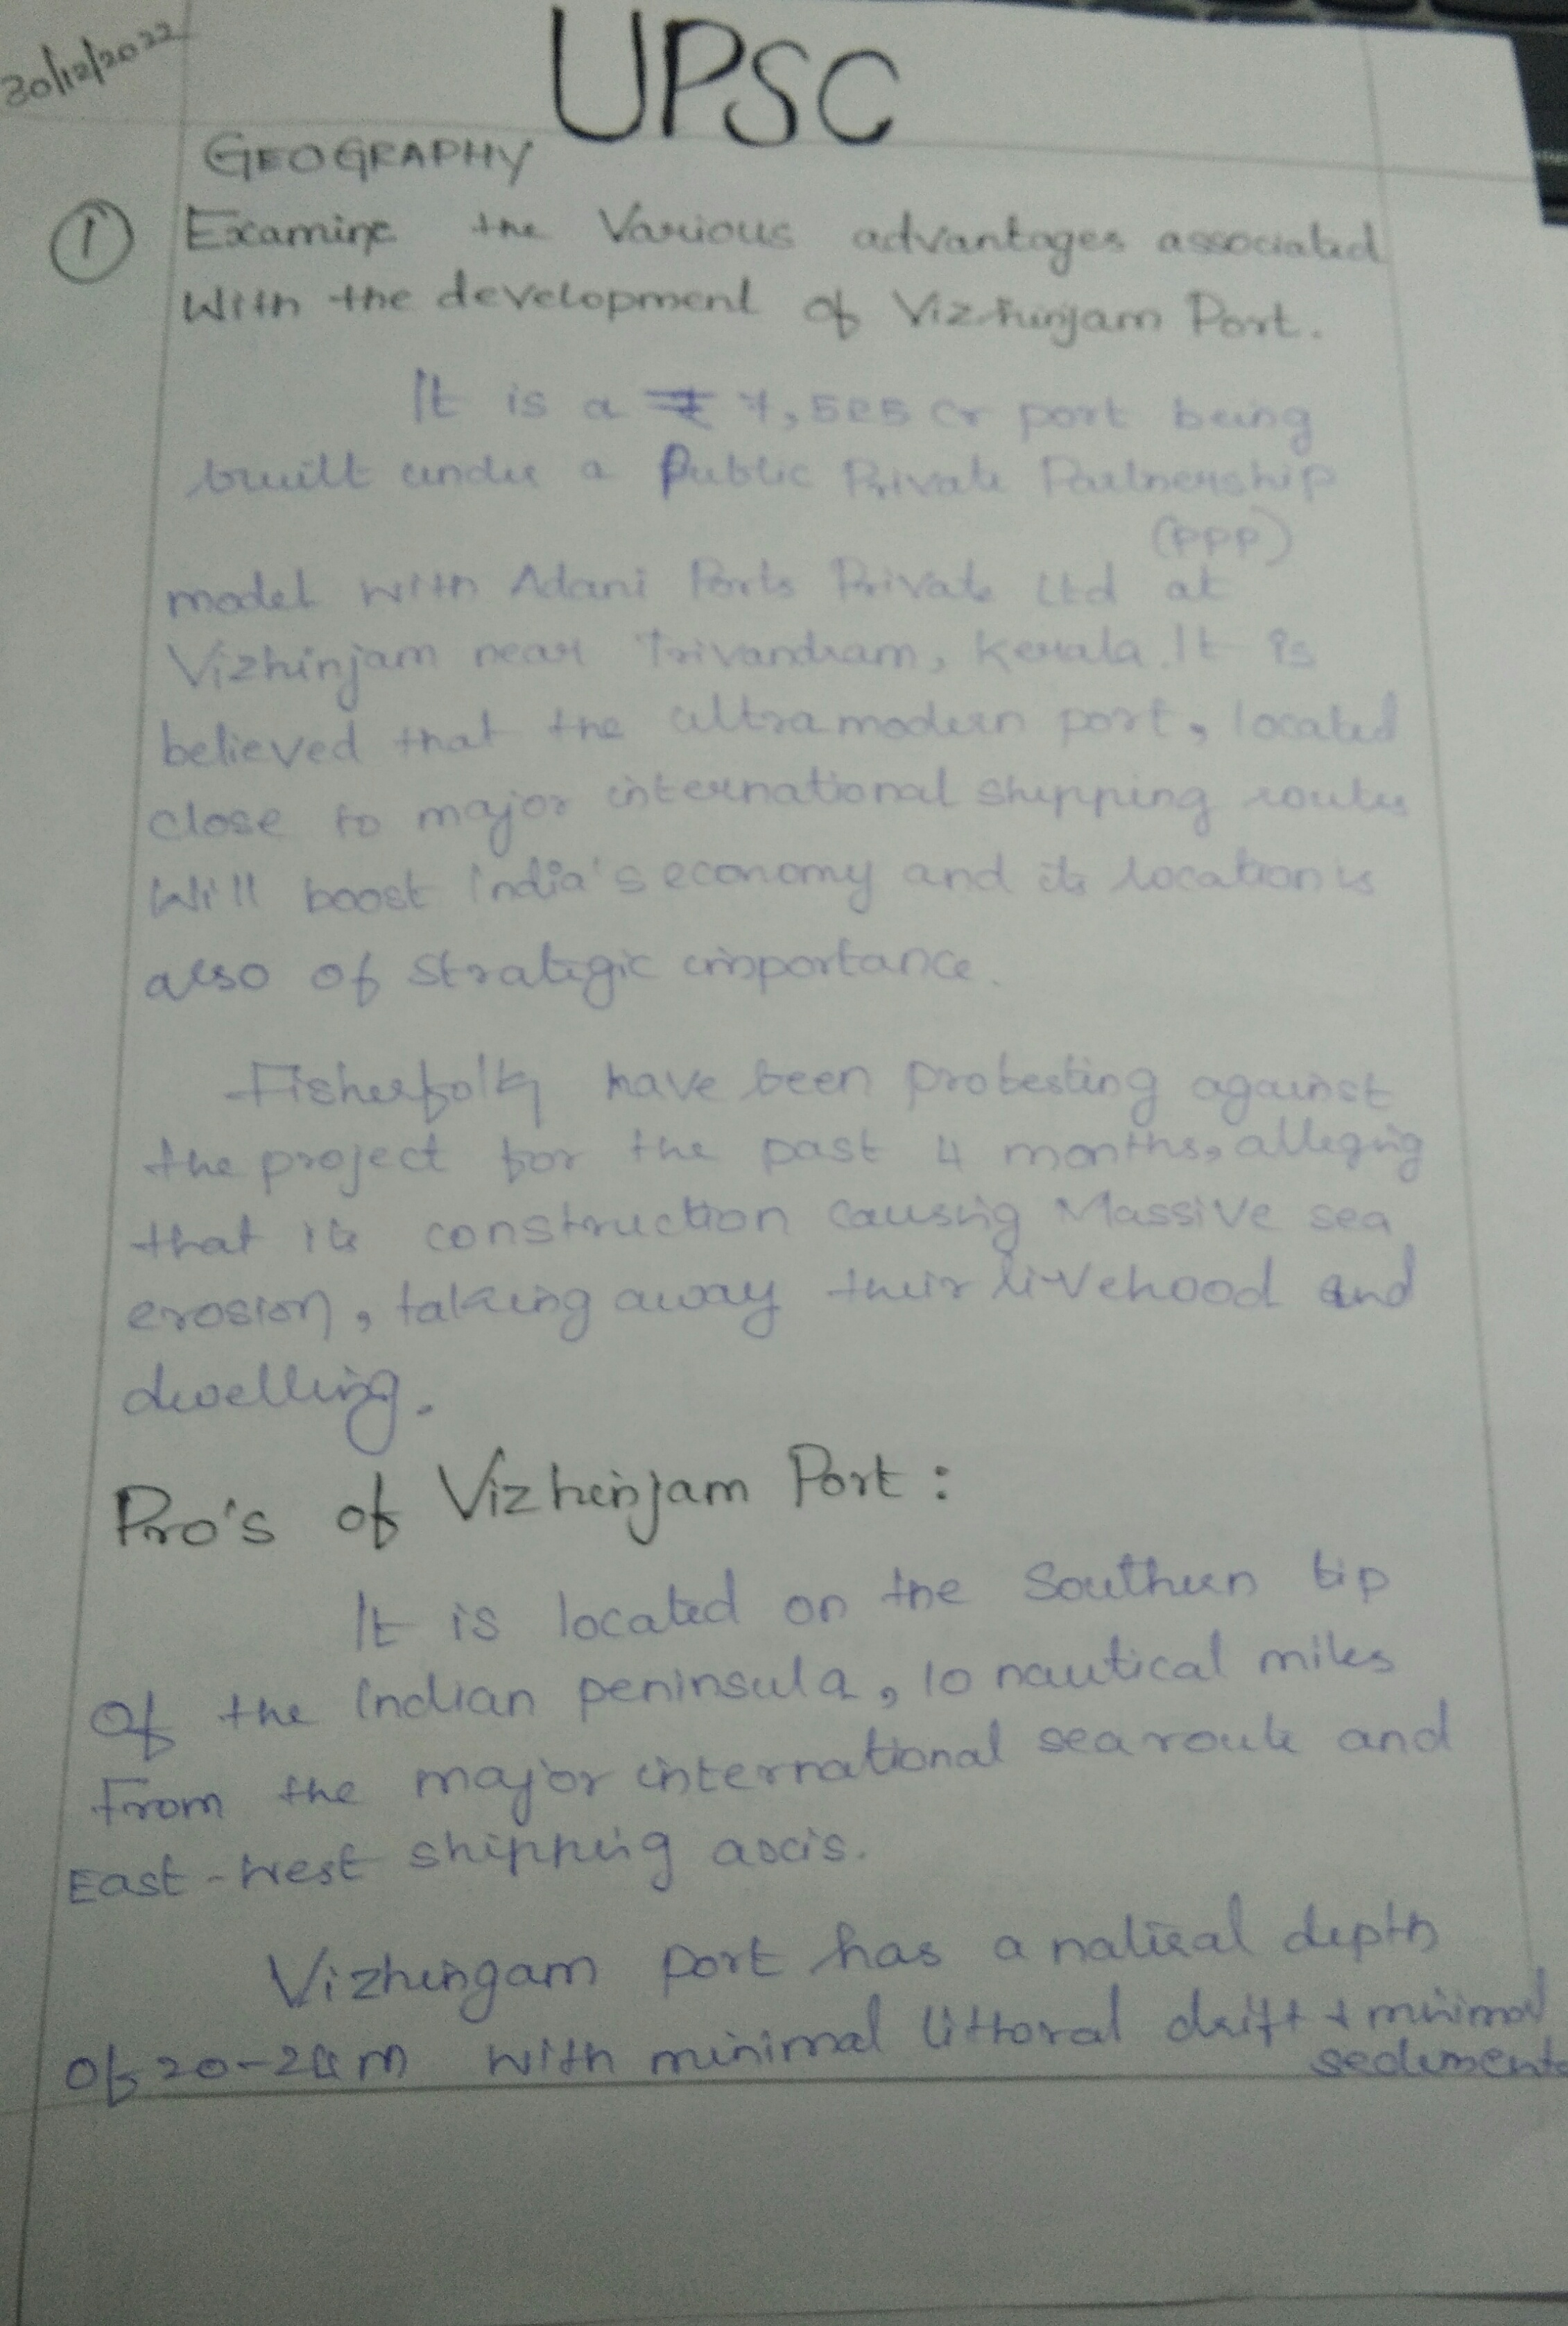 30/12/2022
UPSC
GEOGRAPHY
① Examine the Various advantages associated
With the development of Vizhinjam Port.
It is a ₹ 7,525 Cr port being
built under a Public Private Partnership
(PPP)
model with Adani Ports Private Ltd at
Vizhinjam near Trivandram, Kerala. It is
believed that the ultra modern port, located
close to major international shipping routes
Will boost India's economy and its location is
also of Strategic importance.
Fisherfolk have been protesting against
the project for the past 4 months, alleging
that its construction causing Massive sea
erosion, taking away their livehood and
dwelling.
Pro's of Vizhinjam Port :
It is located on the Southern tip
Of the Indian peninsula, 10 nautical miles
From the major international sea route and
East-West shipping axis.
Vizhingam port has a natural depth
Of 20-24m with minimal littoral drift + minimal
sediments